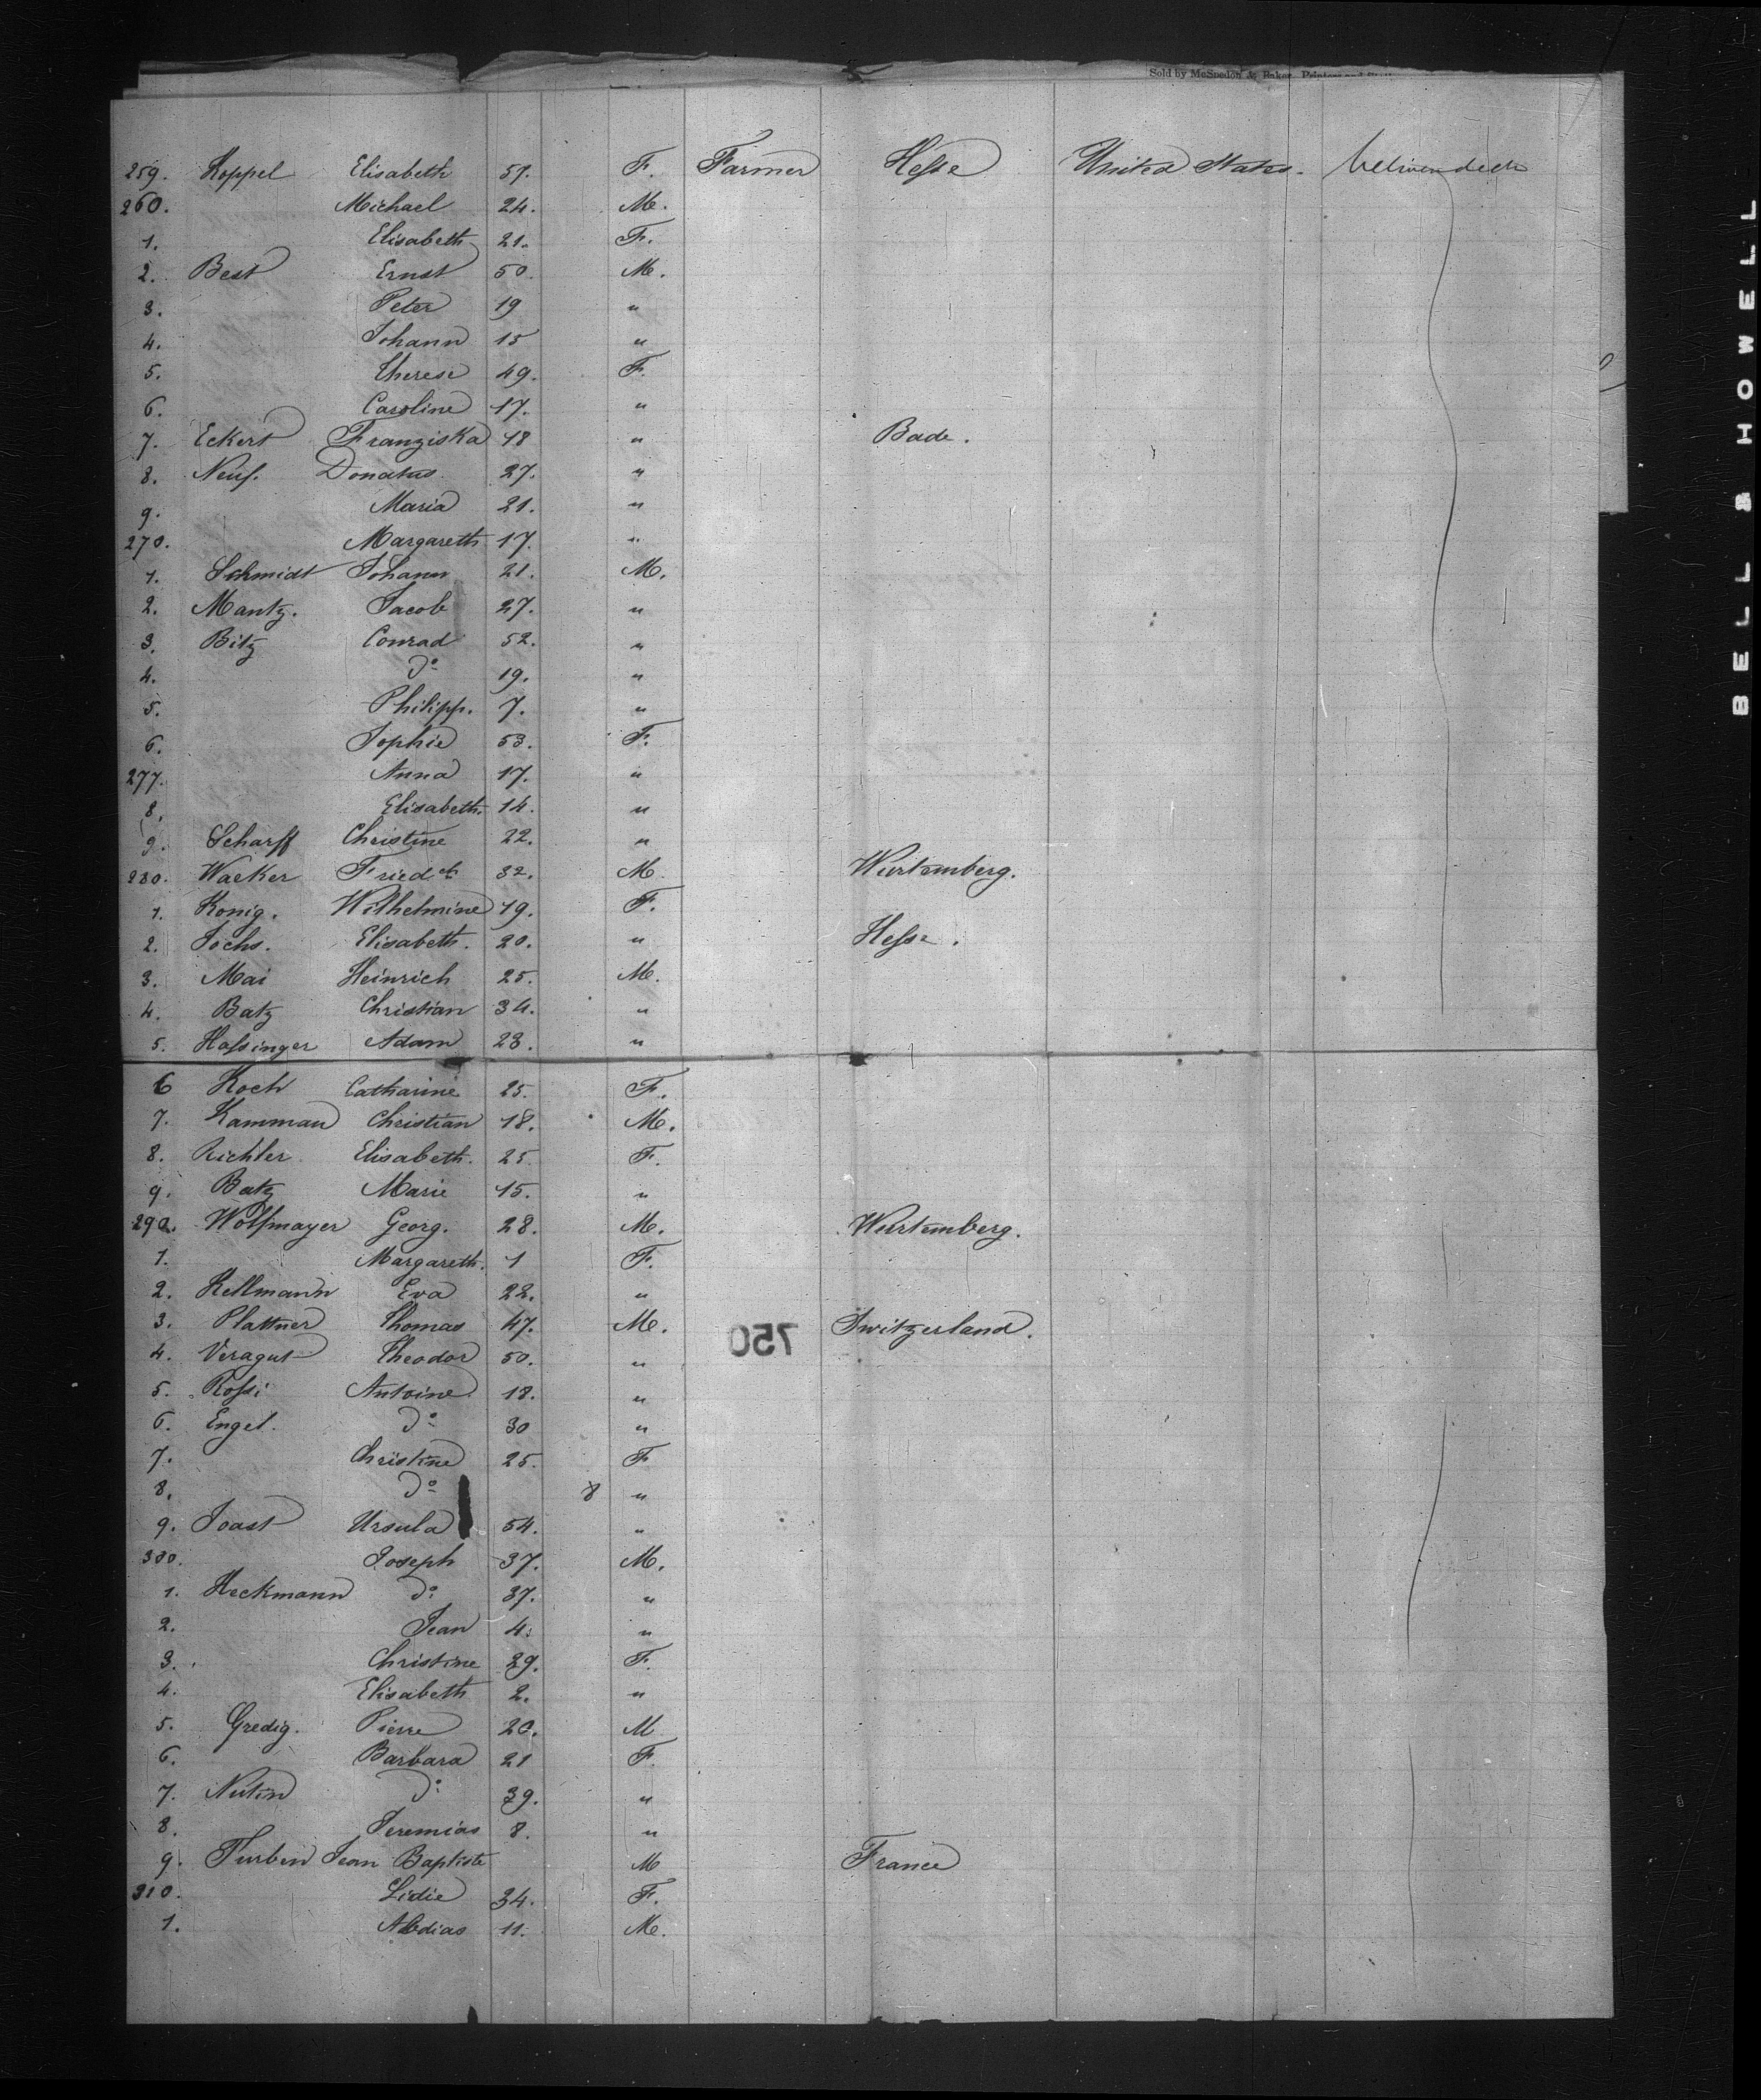 Sold by McSpedon & Baker, Printers and
259. Koppel Elisabeth 51. F. Farmer Hesse United States.
260. Michael 24. M.
1. Elisabeth 21. F.
2. Best Ernst 50. M.
3. Peter 19 "
4. Johann 15 "
5. Therese 49. F.
6. Caroline 17. "
7. Eckert Franziska 18 " Bade.
8. Neuf. Donatus 27. "
9. Maria 21. "
270. Margareth 17. "
1. Schmidt Johann 21. M.
2. Mantz. Jacob 27. "
3. Bitz Conrad 52. "
4. do 19. "
5. Philipp. 7. "
6. Sophie 53. F.
277. Anna 17. "
8. Elisabeth. 14. "
9. Scharff Christine 22. "
280. Wacker Friedch 32. M. Würtemberg.
1. Konig. Wilhelmine 19. F.
2. Jochs. Elisabeth. 20. " Hesse.
3. Mai Heinrich 25. M.
4. Batz Christian 34. "
5. Hassinger Adam 23. "
6 Koch Catharine 25. F.
7. Kamman Christian 18. M.
8. Richter Elisabeth. 25. F.
9. Batz Marie 15. "
290. Wolfmayer Georg. 28. M. Würtemberg.
1. Margareth. 1 F.
2. Kellmann Eva 22. "
3. Plattner Thomas 47. M. 750 Switzerland.
4. Veragut Theodor 50. "
5. Rossi Antoine 18. "
6. Engel. do 30 "
7. Christine 25. F
8. do 8 "
9. Joast Ursula 54. "
300. Joseph 37. M.
1. Heckmann do 37. "
2. Jean 4. "
3. Christine 29. F.
4. Elisabeth 2. "
5. Gredig. Pierre 20. M
6. Barbara 21 F.
7. Nutin do 39. "
8. Jeremias 8. "
9. Turben Jean Baptiste M France
310. Lidie 34. F.
1. Abdias 11. M.
BELL & HOWELL